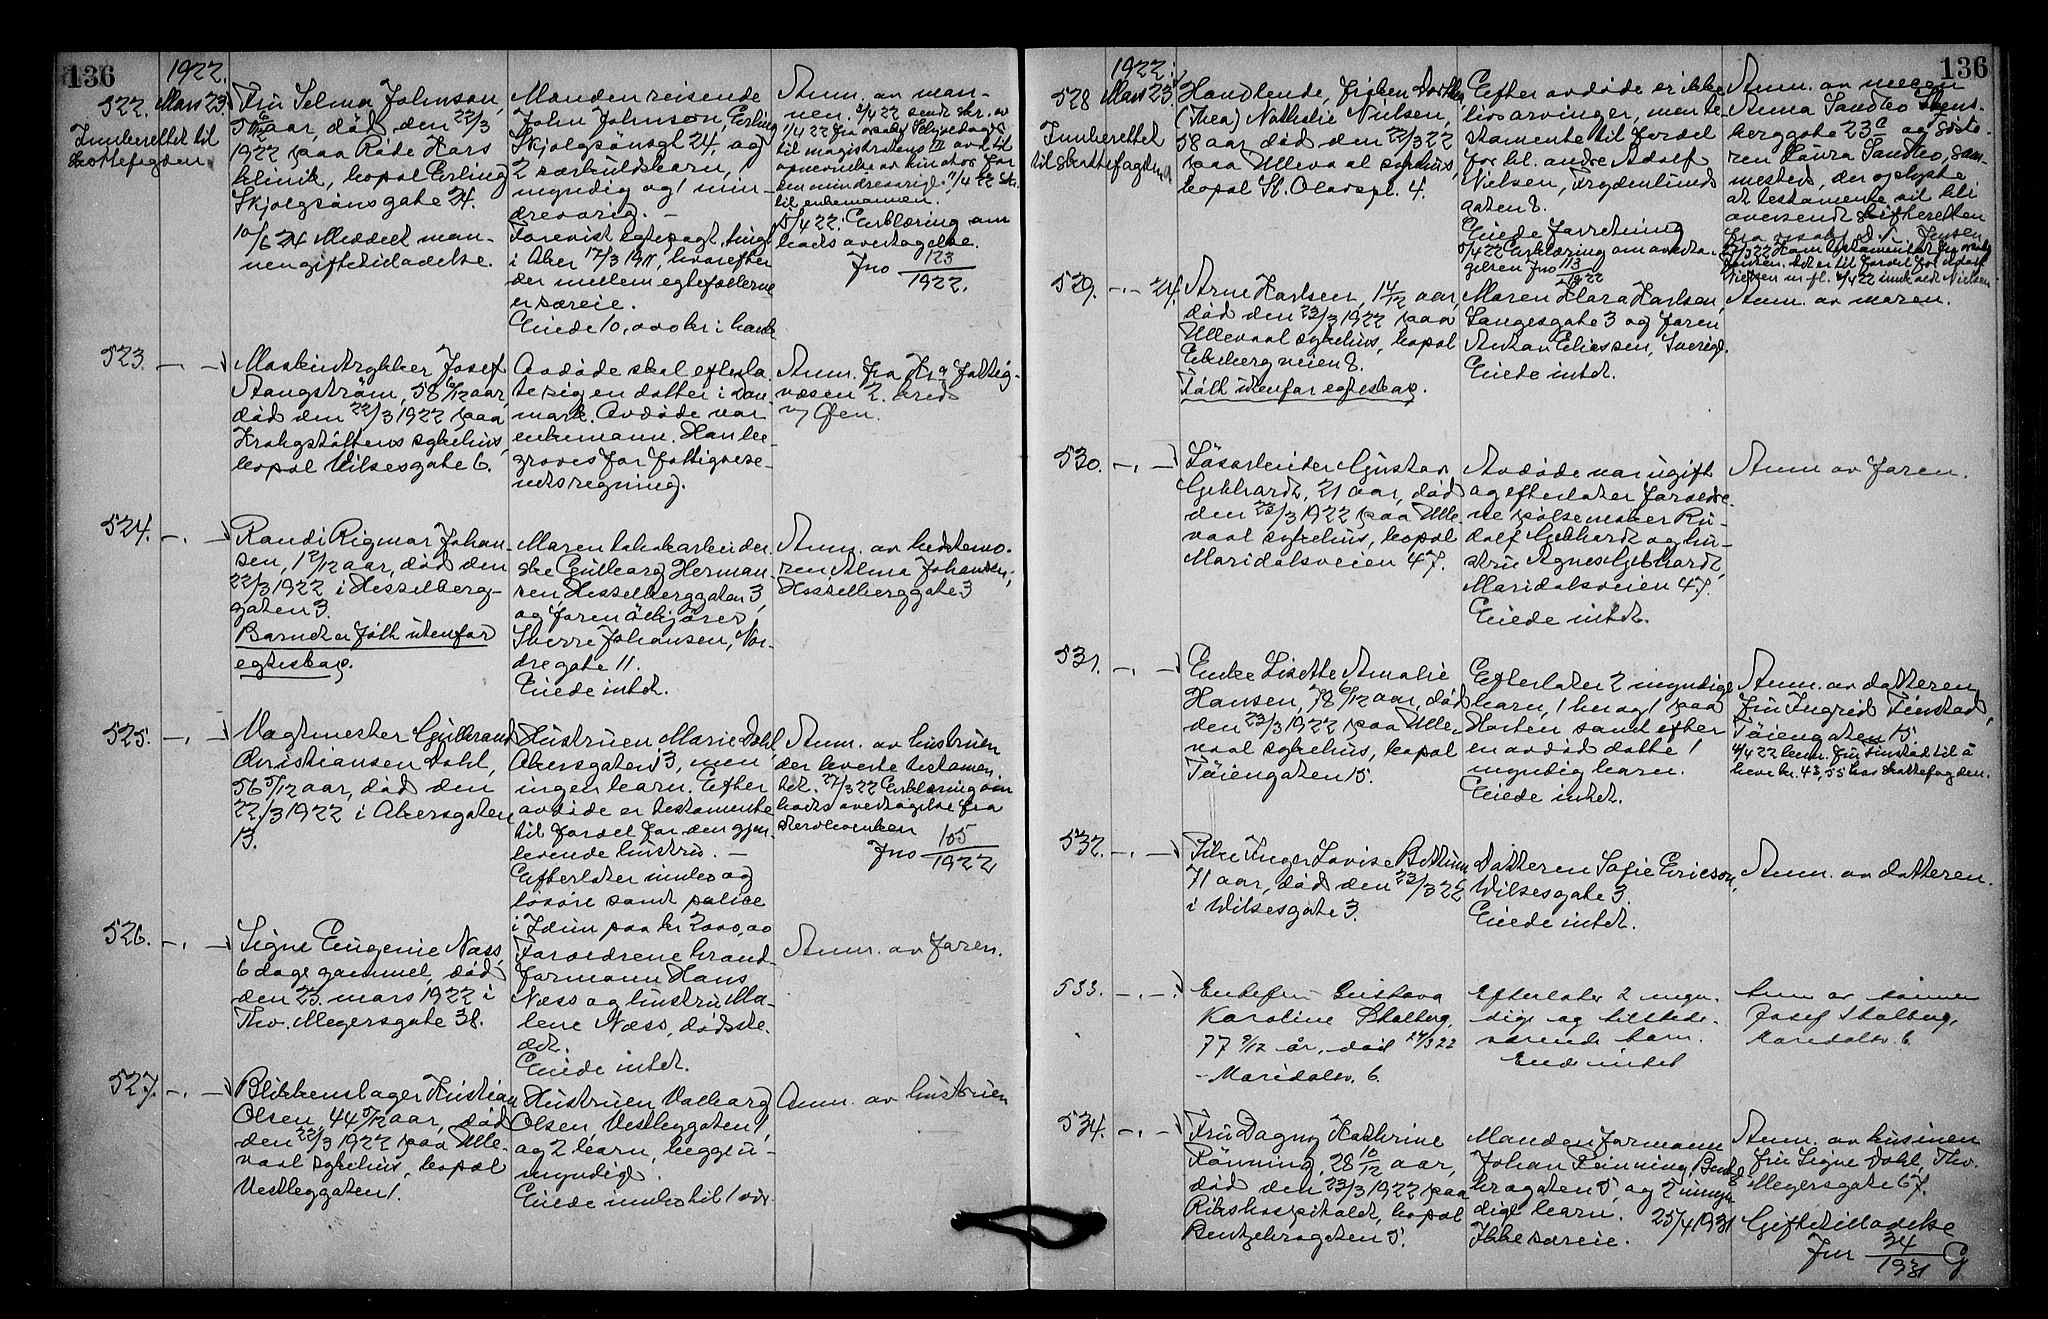 136
1922.
522. Mars 23.
Indberettet til
skattefogden.
Fru Selma Johnson,
51 6/12 aar, død den 22/3
1922 paa Røde Kors
klinik, bopæl Erling
Skjalgsønsgate 24.
10/6 24 Meddelt man-
nen giftetilladelse.
Manden reisende
John Johnson, Erling
Skjalgsønsgt 24, og
2 særkuldsbarn, 1
myndig og 1 min-
dreaarig. —
Forevist egtepagt, tingl.
i Aker 17/3 1911, hvorefter
der mellem egtefællerne
er særeie.
Eiede 10,000 kr i bank
Anm. av man-
nen. 1/4 22 sendt skr. av
1/4 22 fra
til magistratens II avd. til
opnevnelse av kurator for
den mindreaarige. 7/4 22 skr.
til enkemannen.
5/4 22. Erklæring om
boets overtagelse.
Jno 123
1922.
523. —.—
Maskintrykker Josef
Stangstrøm, 58 6/12 aar,
død den 22/3 1922 paa
Krohgstøttens sykehus,
bopæl Wilsesgate 6.
Avdøde skal efterla-
te sig en datter i Dan-
mark. Avdøde var
enkemann. Han be-
graves for fattigvæse-
nets regning.
Anm. fra Kr.a fattig-
væsen 2. kreds
v/ Øen.
524. —.—
Randi Rigmor Johan-
sen, 1 2/12 aar, død den
22/3 1922 i Hesselberg-
gaten 3.
Barnet er født utenfor
egteskap.
Moren fabrikarbeider-
ske Gudborg Herman-
sen Hesselberggaten 3,
og faren ølkjører
Sverre Johansen, Nor-
dregate 11.
Eiede intet.
Anm. av bestemo-
ren Alma Johansen,
Hesselberggate 3
525. —.—
Vagtmester Gulbrand
Christiansen Dahl,
56 5/12 aar, død den
22/3 1922 i Akersgaten
13.
Hustruen Marie Dahl
Akersgaten 13, men
ingen barn. Efter
avdøde er testamente
til fordel for den gjen-
levende hustru. —
Efterlater innbo og
løsøre samt police
i Idun paa kr 2000,00
Anm. av hustruen
der leverte testamen-
tet. 27/3 22 Erklæring om
boets overtagelse fra

Jno 105
1922
526. —.—
Signe Eugenie Næss,
6 dage gammel, død
den 23. mars 1922 i
Thv. Meyersgate 38.
Forældrene brand-
formann Hans
Næss og hustru Ma-
lene Næss, dødsste-
det.
Eiede intet.
Anm. av faren.
527. —.—
Blikkenslager Kristian
Olsen, 44 5/12 aar, død
den 22/3 1922 paa Ulle-
vaal sykehus, bopæl
Vestleggaten 1.
Hustruen Valborg
Olsen, Vestleggaten 1,
og 2 barn, begge u-
myndige.
Eiede innbo til 1 vær.
Anm. av hustruen
136
1922.
528 Mars 23.
Innberettet
til skattefogden
Handlende, frøken Dorthea
(Thea) Nathalie Nielsen,
58 aar, død den 22/3 22
paa Ullevaal sykehus,
bopæl St. Olavspl. 4.
Efter avdøde er ikke
livsarvinger, men te-
stamente til fordel
for bl. andre Adolf
Nielsen, Frydenlunds
gaten 8.
Eiede forretning
5/4 22 Erklæring om overta-
gelsen Jno 113
1922
Anm. av
Anna Sandbo
berggate 23 c og søste-
ren Laura Sandbo, sam-
mesteds, der oplyste
at testamente vil bli
oversendt skifteretten
fra
23/3 22 Fram. testamentet fra
Jensen. Det er til fordel for Adolf
Nielsen m. fl. 4/4 22
529. —.— 24.
Arne Karlsen, 14/12 aar,
død den 23/3 1922 paa
Ullevaal sykehus, bopæl
Ekebergveien 8.
Født utenfor egteskap.
Moren Klara Karlsen,
Langesgate 3 og faren
Anton Ericssen, Sverige.
Eiede intet.
Anm. av moren.
530. —.—
Løsarbeider Gustav
Gebhardt, 21 aar, død
den 23/3 1922 paa Ulle-
vaal sykehus, bopæl
Maridalsveien 47.
Avdøde var ugift
og efterlater forældre-
ne pølsemaker Ru-
dolf Gebhardt og hu-
stru Agnes Gebhardt,
Maridalsveien 47.
Eiede intet.
Anm av faren.
531. —.—
Enke Lisette Amalie
Hansen, 78 6/12 aar, død
den 23/3 1922 paa Ulle-
vaal sykehus, bopæl
Tøiengaten 15.
Efterlater 2 myndige
barn, 1 her og 1 paa
Horten samt efter
en avdød datter 1
myndig barn.
Eiede intet.
Anm. av datteren
fru Ingrid Finstad,
Tøiengaten 15
4/4 22 bem. fru Finstad til å
heve kr. 43,55 hos skattefogden.
532. —.—
Pike Inger Lovise Bottum
71 aar, død den 23/3 22
i Wilsesgate 3.
Datteren Sofie Ericson,
Wilsesgate 3.
Eiede intet.
Anm. av datteren.
533. —.—.
Enkefru Gustava
Karoline Stalberg,
77 9/12 år, død 24/3 22
– Maridalsv. 6.
Efterlater 2 myn-
dige og tilstede-
værende barn.
Eiede intet
Anm av sønnen
Josef Stalberg,
Maridalsv. 6
534. —.—
Fru Dagny Kathrine
Rønning, 28 10/12 aar,
død den 23/3 1922 paa
Rikshospitalet, bopæl
Bentzebrogaten 5.
Manden formann
Johan Rønning, Bentze-
brogaten 5, og 2 umyn-
dige barn.
Ikke særeie.
25/4 1931
Anm. av kusinen
fru Signe Dahl, Thv.
Meyersgate 67.
Giftetilladelse
Jnr 34
1931 G